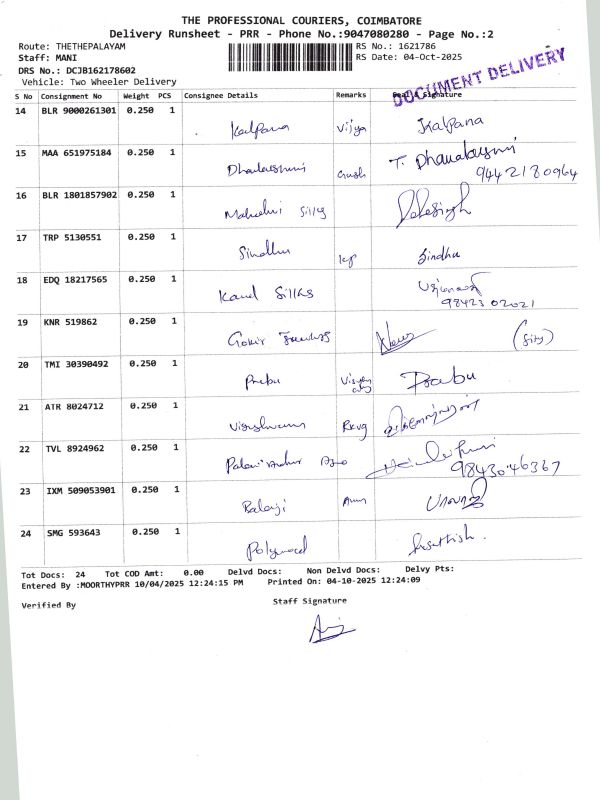 THE PROFESSIONAL COURIERS, COIMBATORE
Delivery Runsheet - PRR - Phone No.:9047080280 - Page No.:2
Route: THETHEPALAYAM RS No.: 1621786
Staff: MANI RS Date: 04-Oct-2025
DRS No.: DCJB162178602
Vehicle: Two Wheeler Delivery
DOCUMENT DELIVERY
S No Consignment No Weight PCS Consignee Details Remarks Seal & Signature
14 BLR 9000261301 0.250 1 Kalpana Vijya Kalpana
15 MAA 651975184 0.250 1 Dhanalaxmi T. Dhanalaxmi
9442180964
16 BLR 1801857902 0.250 1 Silks
17 TRP 5130551 0.250 1 Sindhu Sindhu
18 EDQ 18217565 0.250 1 Silks
98423 02021
19 KNR 519862 0.250 1
20 TMI 30390492 0.250 1 Prabu Prabu
21 ATR 8024712 0.250 1
22 TVL 8924962 0.250 1
9843046367
23 IXM 509053901 0.250 1 Balaji
24 SMG 593643 0.250 1
Tot Docs: 24 Tot COD Amt: 0.00 Delvd Docs: Non Delvd Docs: Delvy Pts:
Entered By :MOORTHYPRR 10/04/2025 12:24:15 PM Printed On: 04-10-2025 12:24:09
Verified By Staff Signature